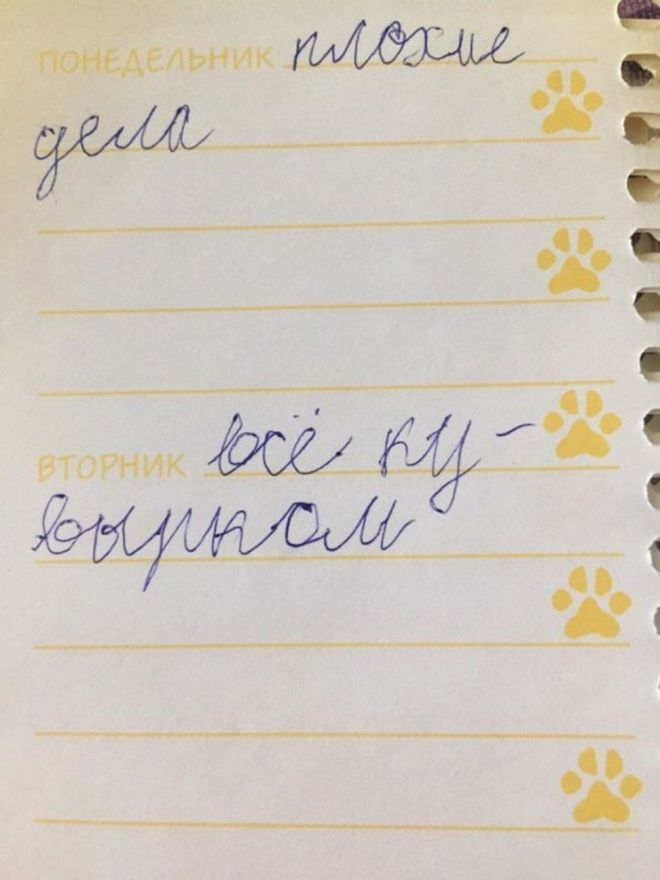 ПОНЕДЕЛЬНИК плохие
дела
ВТОРНИК всё ку-
вырком